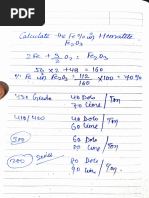 Calculate the Fe % in Hematite
Fe2O3
2Fe + 3/2 O2 = Fe2O3
56 x 2 + 48 = 160
% Fe in Fe2O3 = 112/160 x 100 = 70%
430 Grade 40 Dolo
70 Lime / Ton
410/400 40 Dolo
60 Lime / Ton
300 60 Dolo
90 Lime / Ton
200 Series 80 Dolo
90 Lime / Ton